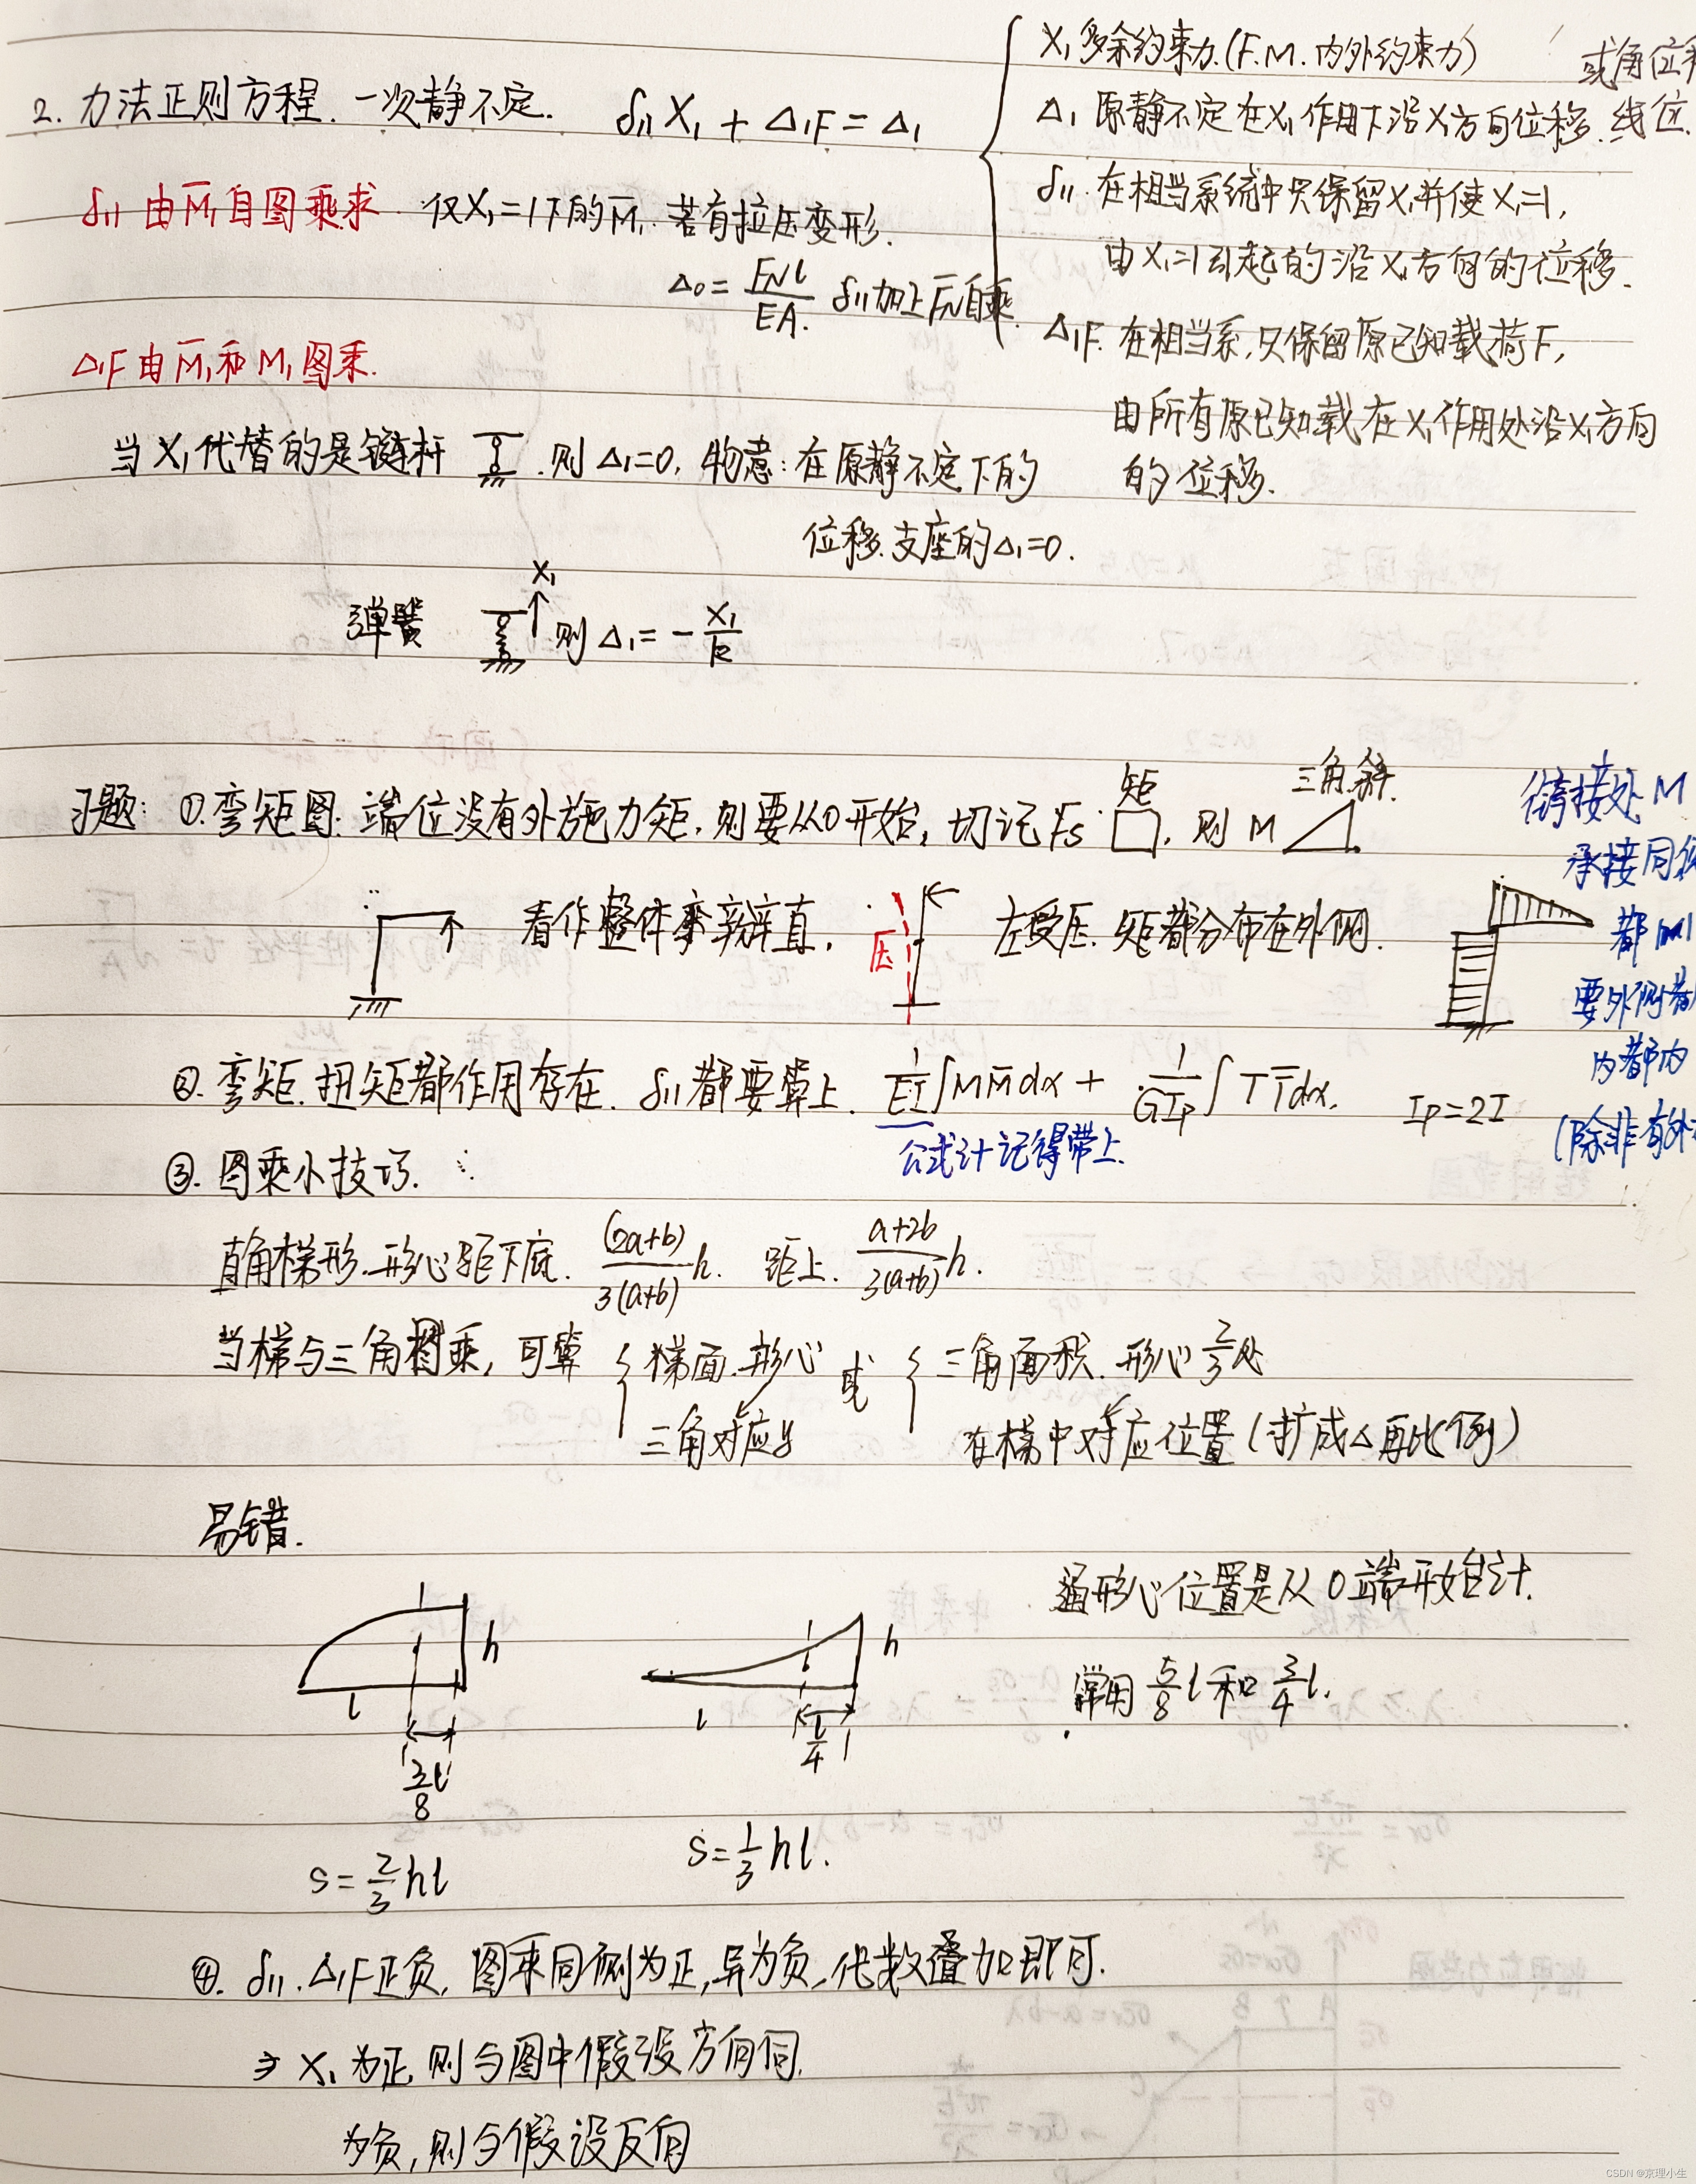 2. 力法正则方程. 一次静不定. δ₁₁X₁ + Δ₁F = Δ₁
X₁ 多余约束力.(F.M. 内外约束力)
或角位移
Δ₁ 原静不定在X₁作用下沿X₁方向位移. 线位.
δ₁₁. 在相当系统中只保留X₁并使X₁=1,
由X₁=1引起的沿X₁方向的位移.
Δ₁F. 在相当系,只保留原已知载荷F,
由所有原已知载在X₁作用处沿X₁方向
的位移.
δ₁₁ 由M̄₁自图乘求. 仅X₁=1下的M̄₁. 若有拉压变形.
Δ₀ = FNl/EA. δ₁₁加上F̄N自乘.
Δ₁F 由M̄₁和M₁图乘.
当X₁代替的是链杆 .则Δ₁=0, 物意:在原静不定下的
位移.支座的Δ₁=0.
弹簧 X₁ 则Δ₁= -X₁/k
习题: ①.弯矩图. 端位没有外施力矩,则要从0开始, 切记Fs 矩, 则M 三角.斜.
看作整体掰直, 压 左受压. 矩都分布在外侧.
衔接处M
承接同侧
都
要外侧都
内都内
(除非有外
②. 弯矩.扭矩都作用存在. δ₁₁都要算上. 1/EI ∫MM̄dx + 1/GIp ∫TT̄dx. Ip=2I
公式计记得带上.
③. 图乘小技巧.
直角梯形.形心距下底. (2a+b)/3(a+b) h. 距上. a+2b/3(a+b) h.
当梯与三角图乘, 可算 { 梯面.形心 或 { 三角面积. 形心2/3处
三角对应y 在梯中对应位置(扩成△再比例)
易错.
h
l
3l/8
S=2/3 hl
h
l
l/4
S=1/3 hl.
形心位置是从0端开始计.
常用 5/8 l 和 3/4 l.
④. δ₁₁.Δ₁F正负, 图乘同侧为正,异为负,代数叠加即可.
⇒ X₁为正,则与图中假设方向同.
为负,则与假设反向
CSDN @京理小生